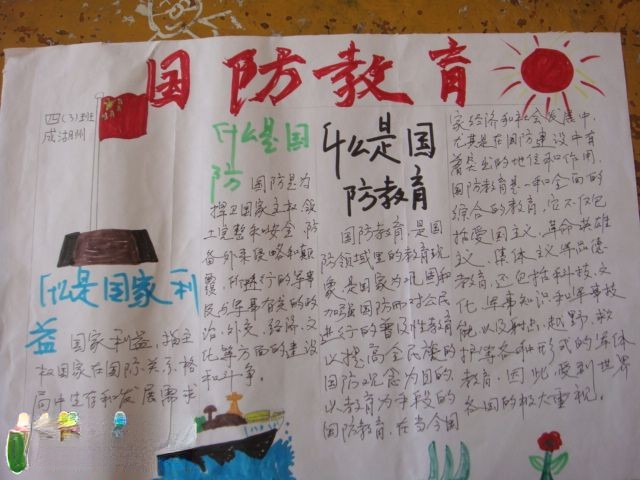 国防教育
四(3)班
成湖州
什么是国家利
益
国家利益,指主
权国家在国际关系格
局中生存和发展需求
什么是国
防
国防是为
捍卫国家主权、领
土完整和安全,防
备外来侵略和颠
覆,所进行的军事
及与军事有关的政
治,外交,经济,文
化等方面的建设
和斗争。
什么是国
防教育
国防教育,是国
防领域里的教育现
象,是国家为巩固和
加强国防而对公民
进行的普及性教育
以提高全民族的
国防观念为目的,
以教育为手段的
国防教育,在当今国
家经济和社会发展中,
尤其是在国防建设中有
着突出的地位和作用,
国防教育是一种全面的
综合的教育,它不仅包
括爱国主义,革命英雄
主义,集体主义军品德
教育,还包括科技,文
化,军事知识和军事技
能,以及射击,越野,救
护等各种形式的军体
教育,因此,受到世界
各国的极大重视。